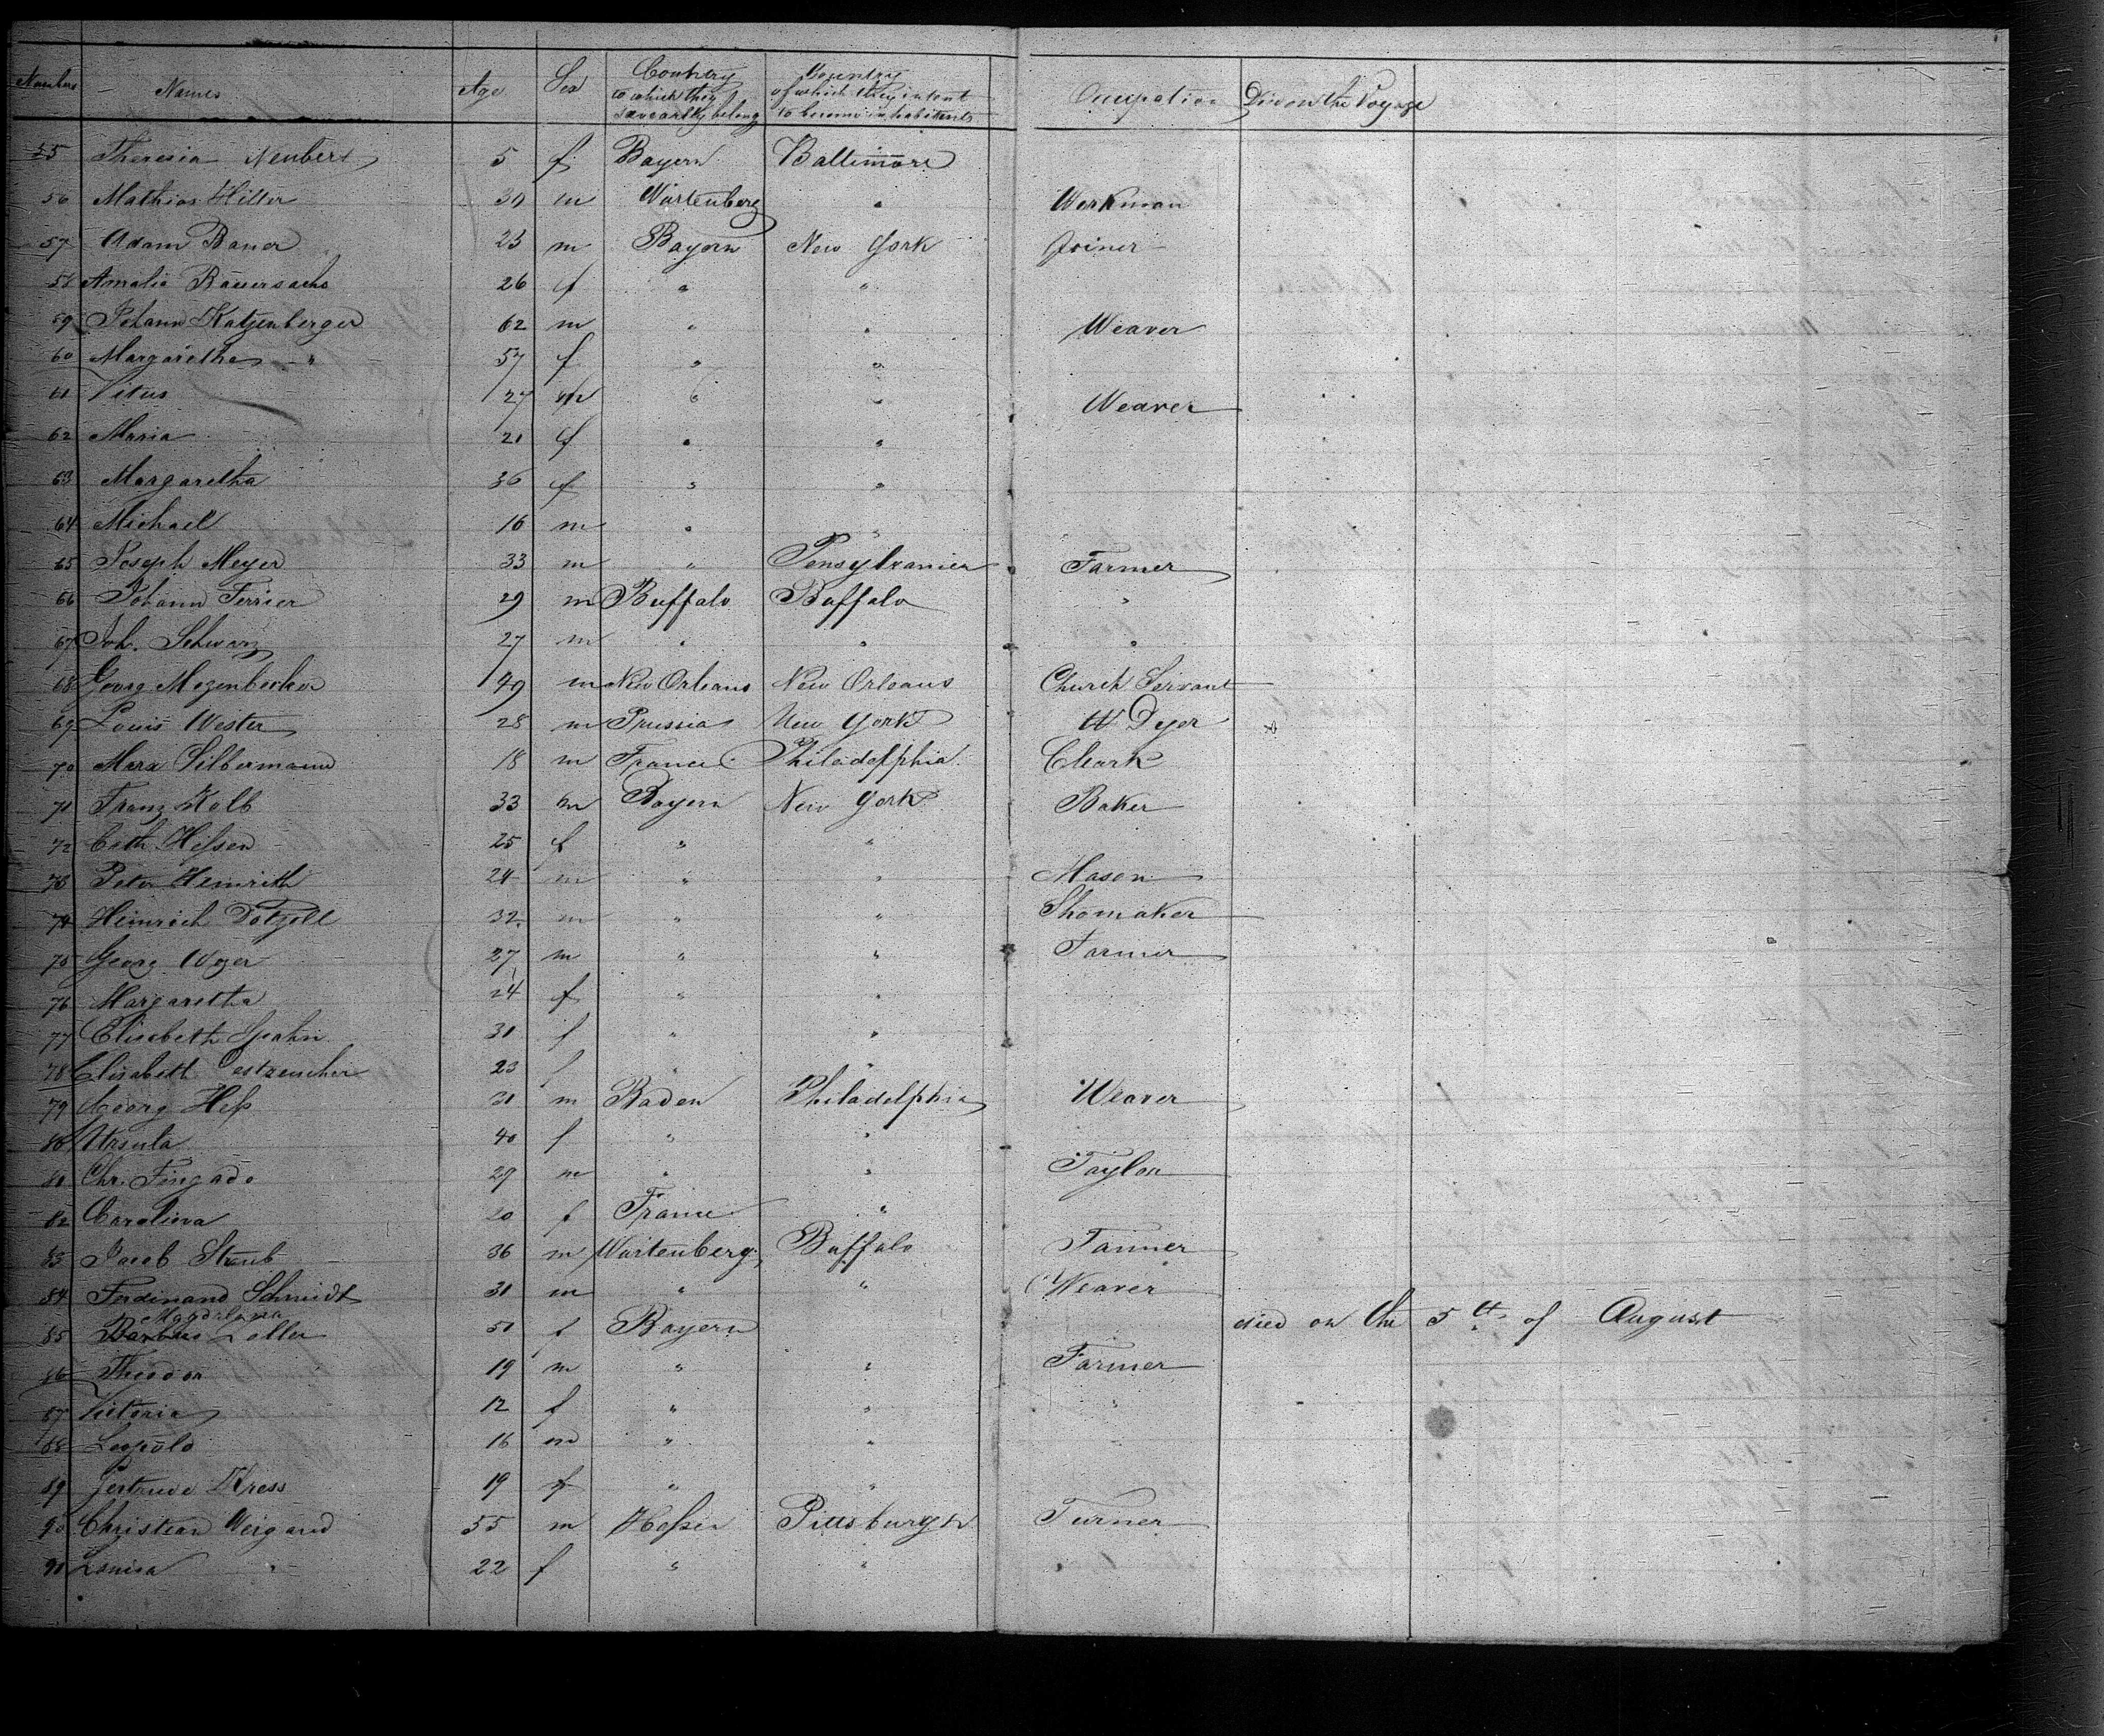 Number Names Age Sex Country to which they severally belong Country of which they intent to become inhabitants Occupation Die on the Voyage
55 Theresia Neubert 5 f Bayern Baltimore
56 Mathias Hiller 30 m Würtenberg " Workman
57 Adam Bauer 23 m Bayern New York Joiner
58 Amalia Bauersachs 26 f " "
59 Johann Katzenberger 62 m " " Weaver
60 Margaretha " 57 f " "
61 Vitus 27 m " " Weaver
62 Maria 21 f " "
63 Margaretha 36 f " "
64 Michael 16 m " "
65 Joseph Meyer 33 m " Pensylvanien Farmer
66 Johann Ferrier 29 m Buffalo Buffalo "
67 Joh. Schwarz 27 m " " "
68 Georg Mezenbecker 49 m New Orleans New Orleans Church Servant
69 Louis Wester 28 m Prussia New York Dyer
70 Marx Silbermann 18 m France Philadelphia Cleark
71 Franz Kolb 33 m Bayern New York Baker
72 Cath. Hessen 25 f " "
73 Peter Heinrich 24 m " " Mason
74 Heinrich 32 m " " Shomaker
75 Georg 27 m " " Farmer
76 Margaretha 24 f " "
77 Elisabeth Spahn 31 f " "
78 Elisabeth 23 f " "
79 Georg Heß 31 m Baden Philadelphia Weaver
80 Ursula 40 f " "
81 Chr. Fingado 29 m " " Taylor
82 Carolina 20 f France "
83 Jacob Straub 36 m Würtenberg Buffalo Tanner
84 Ferdinand Schmidt 31 m " " Weaver
Magdalena
85 Zoller 51 f Bayern died on the 5th of August
86 Theodor 19 m " " Farmer
87 Victoria 12 f " " "
88 Leopold 16 m " "
89 Gertrude Kress 19 f " "
90 Christian Weigand 55 m Hessen Pittsburgh Turner
91 Louisa " 22 f " "